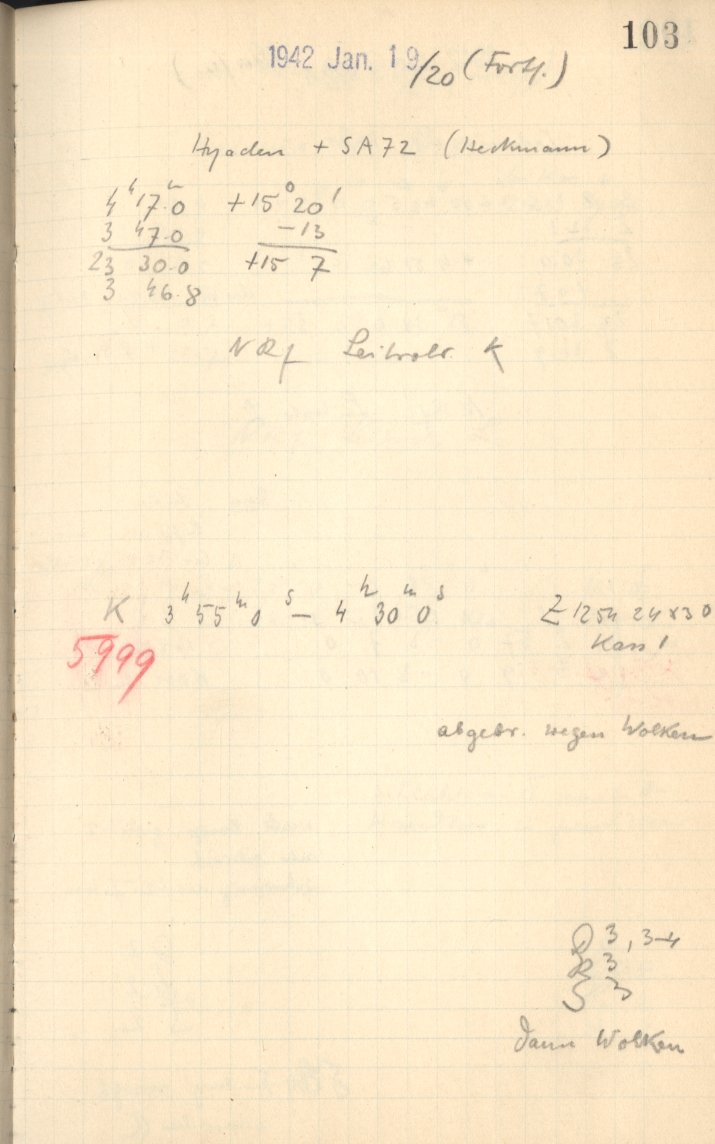 103
1942 Jan. 19/20 (Forts.)
Hyaden + SA72 (Heckmann)
4ʰ17ᵐ.0 +15°20'
3 47.0 -13
23 30.0 +15 7
3 46.8
Leitrohr K
K 3ʰ55ᵐ0ˢ – 4ʰ30ᵐ0ˢ Z 1254 24x30
Kass 1
5999
abgebr. wegen Wolken
3, 3-4
R 3
S 3
dann Wolken